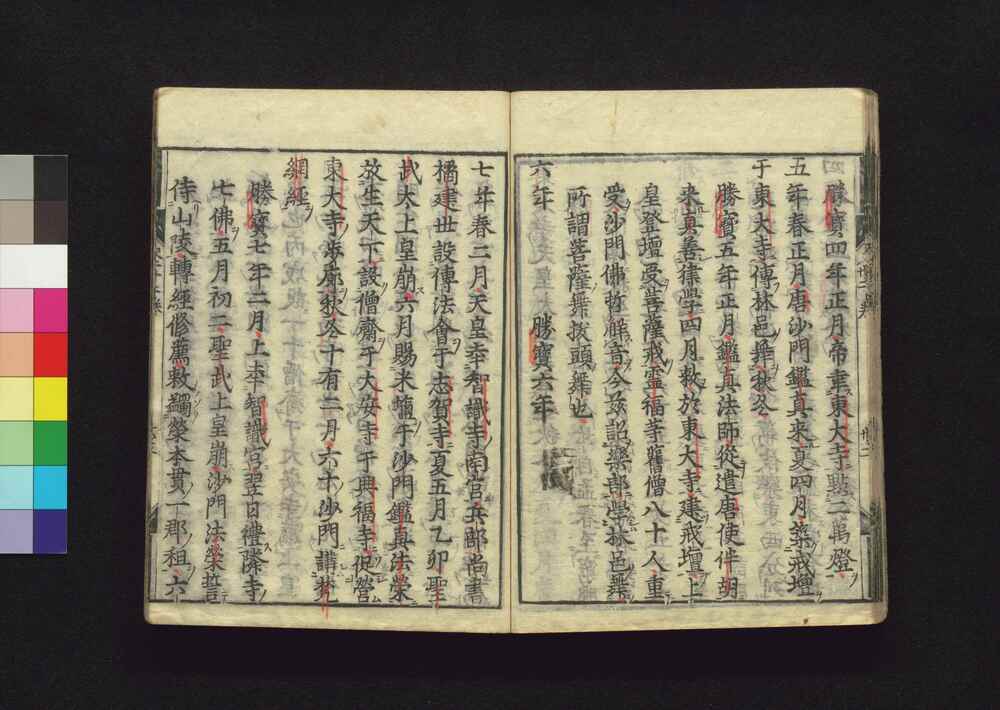 勝寶四年正月帝幸東大寺點二萬燈
五年春正月唐沙門鑑真來夏四月築戒壇
于東大寺傳林邑舞秋冬
勝寶五年正月鑑真法師從遣唐使伴胡
來真善律學四月敕於東大寺建戒壇上
皇登壇受菩薩戒靈福等舊僧八十人重
受沙門佛哲解音今茲詔樂部學林邑舞
所謂菩薩舞拔頭舞也
六年 勝寶六年
七年春二月天皇幸智識寺南宮兵部尚書
橘建世設傳法會于志賀寺夏五月乙卯聖
武太上皇崩六月賜米 于沙門鑑真法榮
放生天下設僧齋于大安寺于興福寺促營
東大寺步廊秋冬十有二月六十沙門講梵
網經
勝寶七年二月上幸智識宮翌日禮隣寺
七佛五月初二聖武上皇崩沙門法榮誓
侍山陵轉經修薦敕蠲榮本貫一郡租六